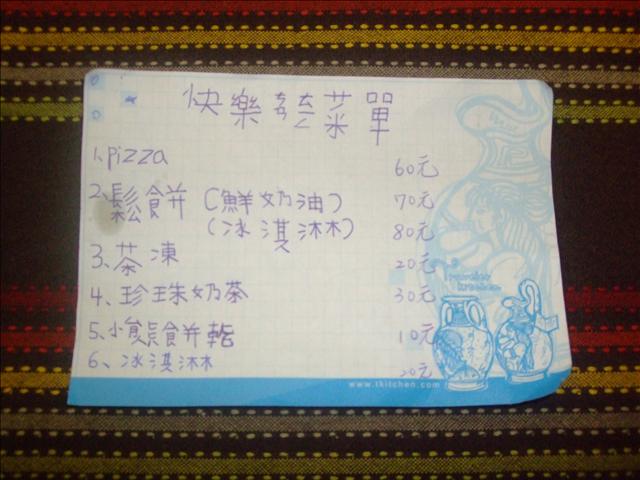 快樂 菜單
1.pizza 60元
2.鬆餅(鮮奶油) 70元
(冰淇淋) 80元
3.茶凍 20元
4.珍珠奶茶 30元
5.小熊餅乾 10元
6、冰淇淋 20元